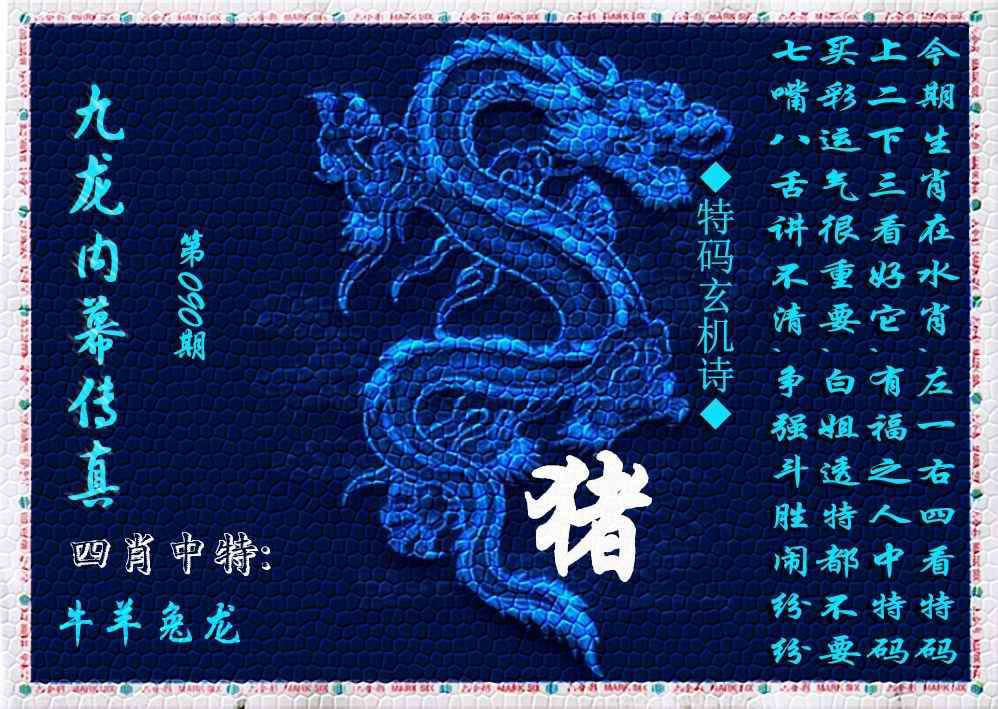 今期生肖在水肖、左一右四看特码
上二下三看好它、有福之人中特码
买彩运气很重要、白姐透特都不要
七嘴八舌讲不清、争强斗胜闹纷纷
◆特码玄机诗◆
九龙内幕传真
第090期
猪
四肖中特:
牛羊兔龙